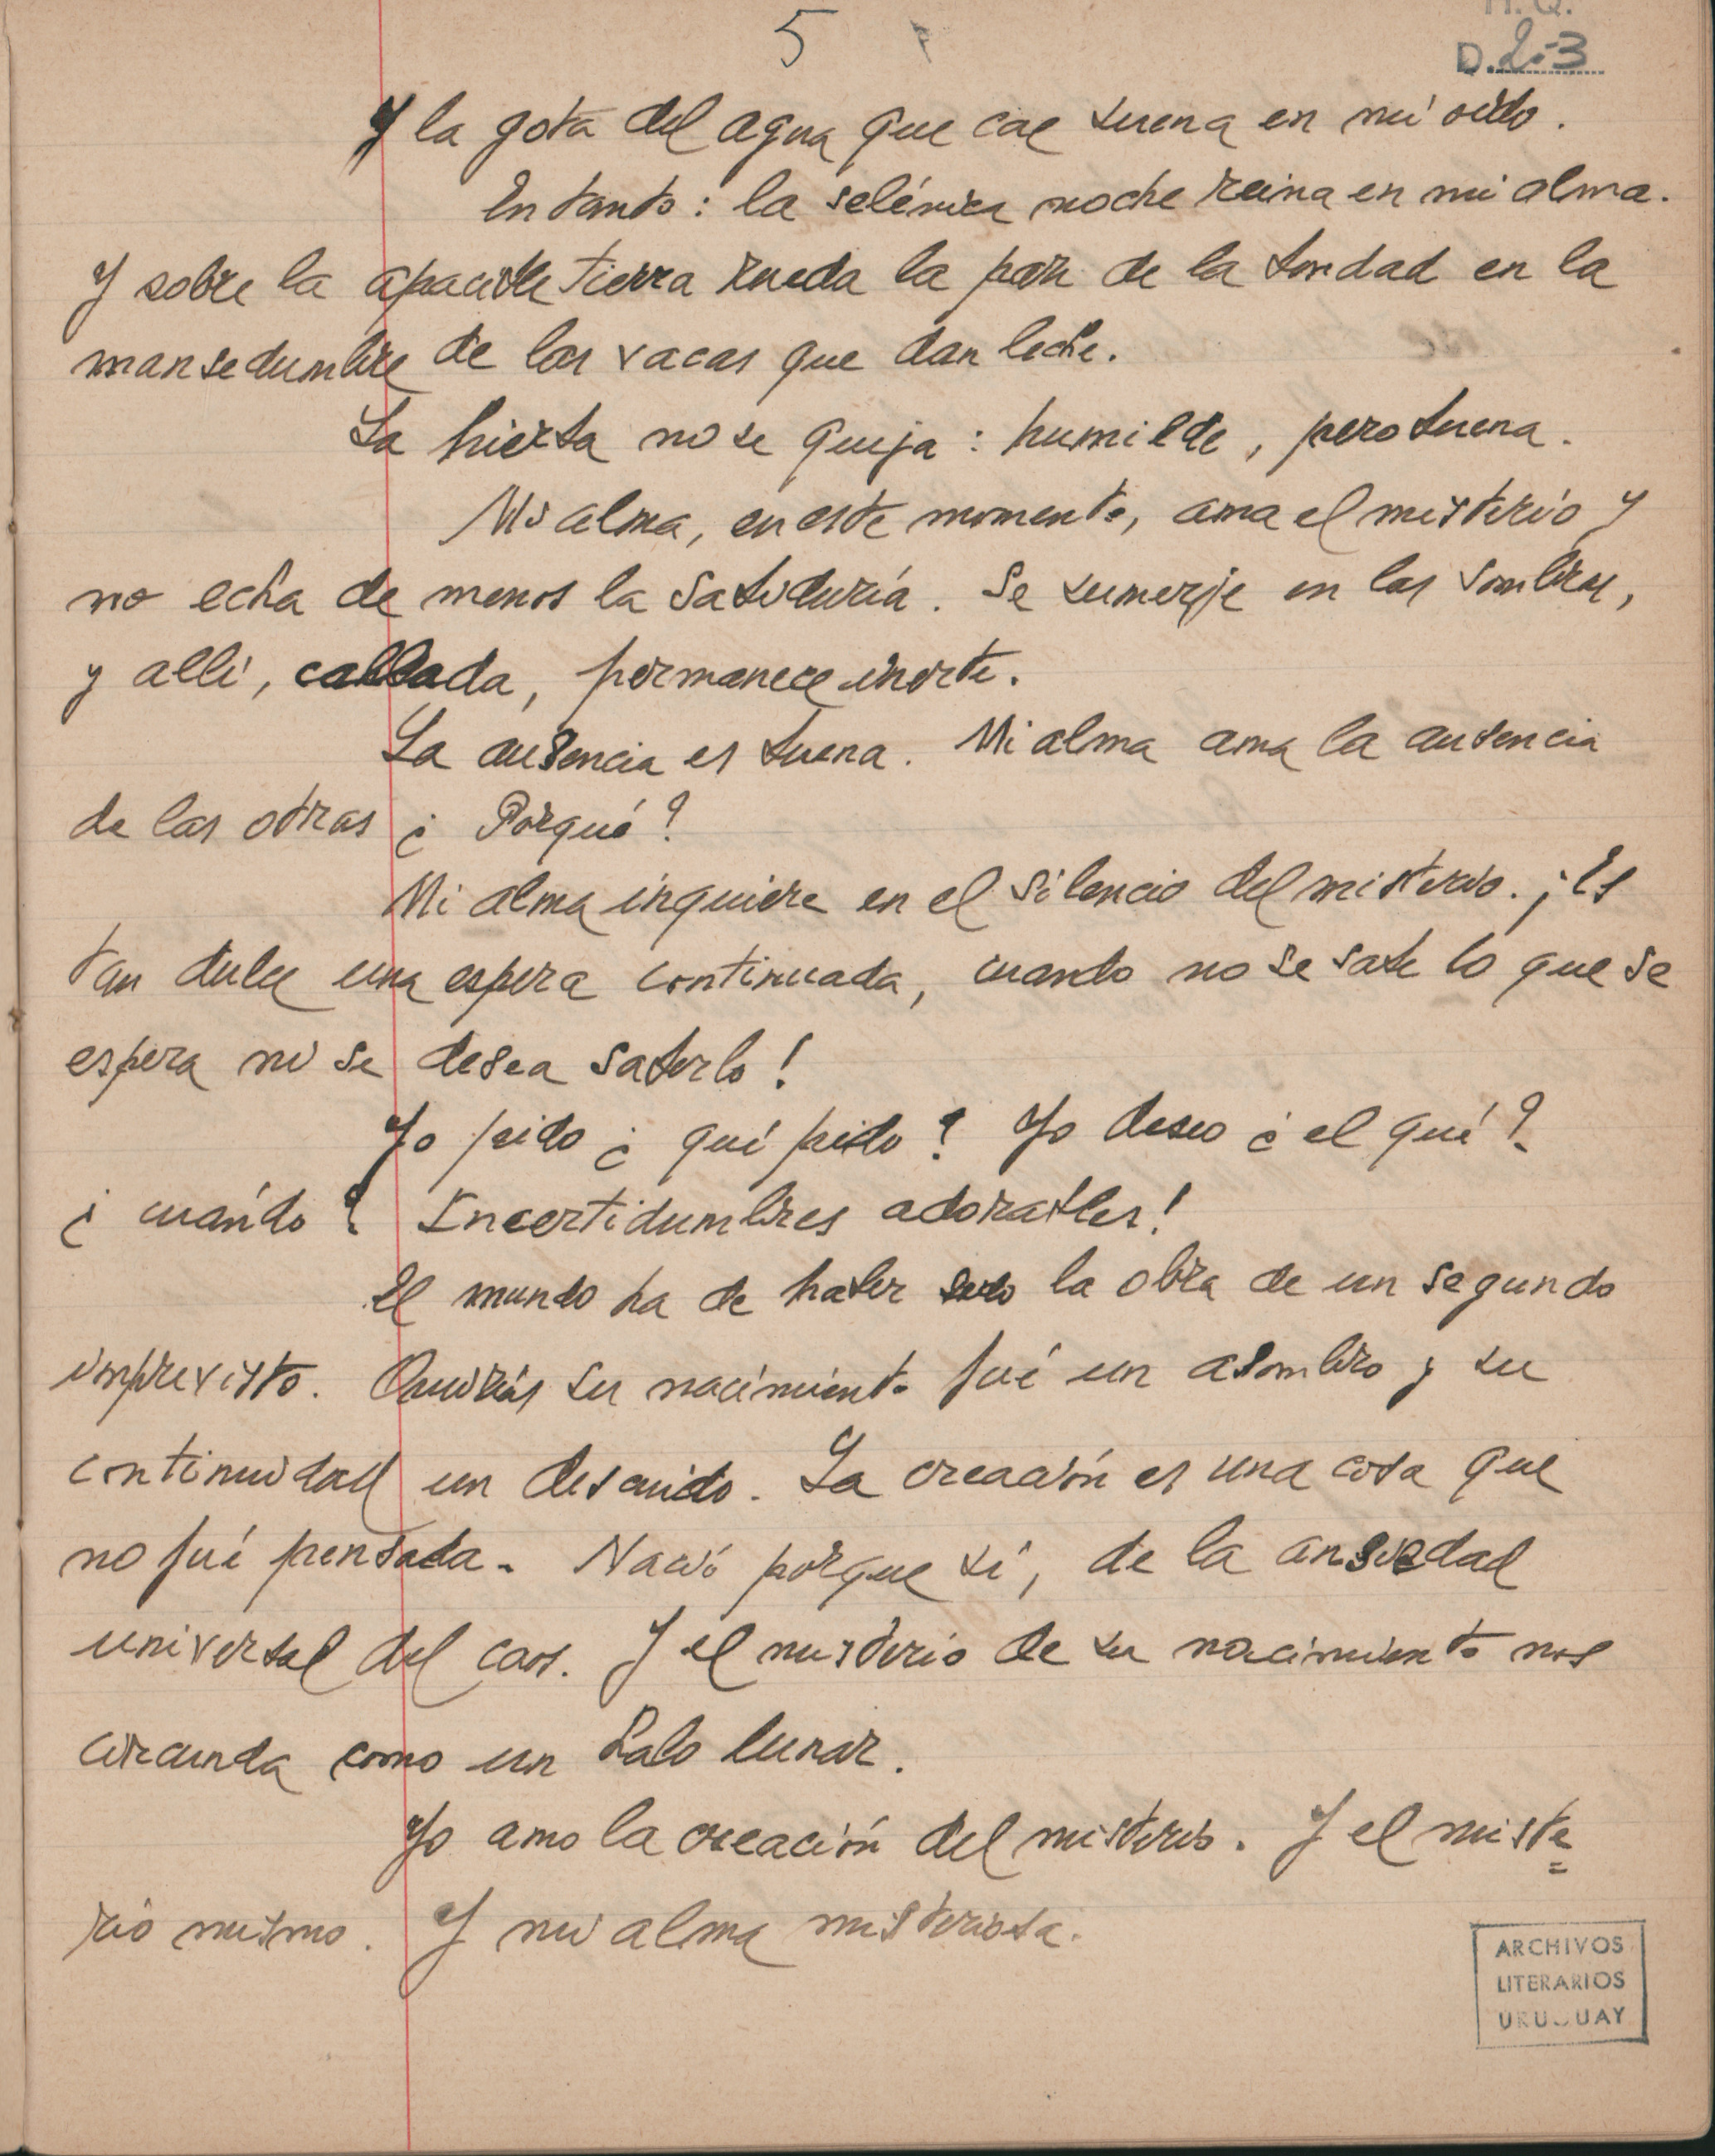 5
H. Q.
D. 2-3
Y la gota del agua que cae suena en mi oido.
En tanto: la selénica noche reina en mi alma.
Y sobre la apacible tierra rueda la paz de la bondad en la
mansedumbre de las vacas que dan leche.
La hierba no se queja: humilde, pero buena.
Mi alma, en este momento, ama el misterio y
no echa de menos la sabiduría. Se sumerje en las sombras,
y alli, callada, permanece inerte.
La ausencia es buena. Mi alma ama la ausencia
de las otras ¿ Porqué?
Mi alma inquiere en el silencio del misterio. ¡Es
tan dulce una espera continuada, cuando no se sabe lo que se
espera ni se desea saberlo!
Yo pido ¿ qué pido? Yo deseo ¿ el qué?
¿ cuándo? Incertidumbres adorables!
El mundo ha de haber sido la obra de un segundo
imprevisto. Quizás su nacimiento fué un asombro y su
continuidad un descuido. La creación es una cosa que
no fué pensada. Nació porque sí, de la ansiedad
universal del caos. Y el misterio de su nacimiento nos
circunda como un halo lunar.
Yo amo la creación del misterio. Y el miste=
rio mismo. Y mi alma misteriosa.
ARCHIVOS
LITERARIOS
URUGUAY